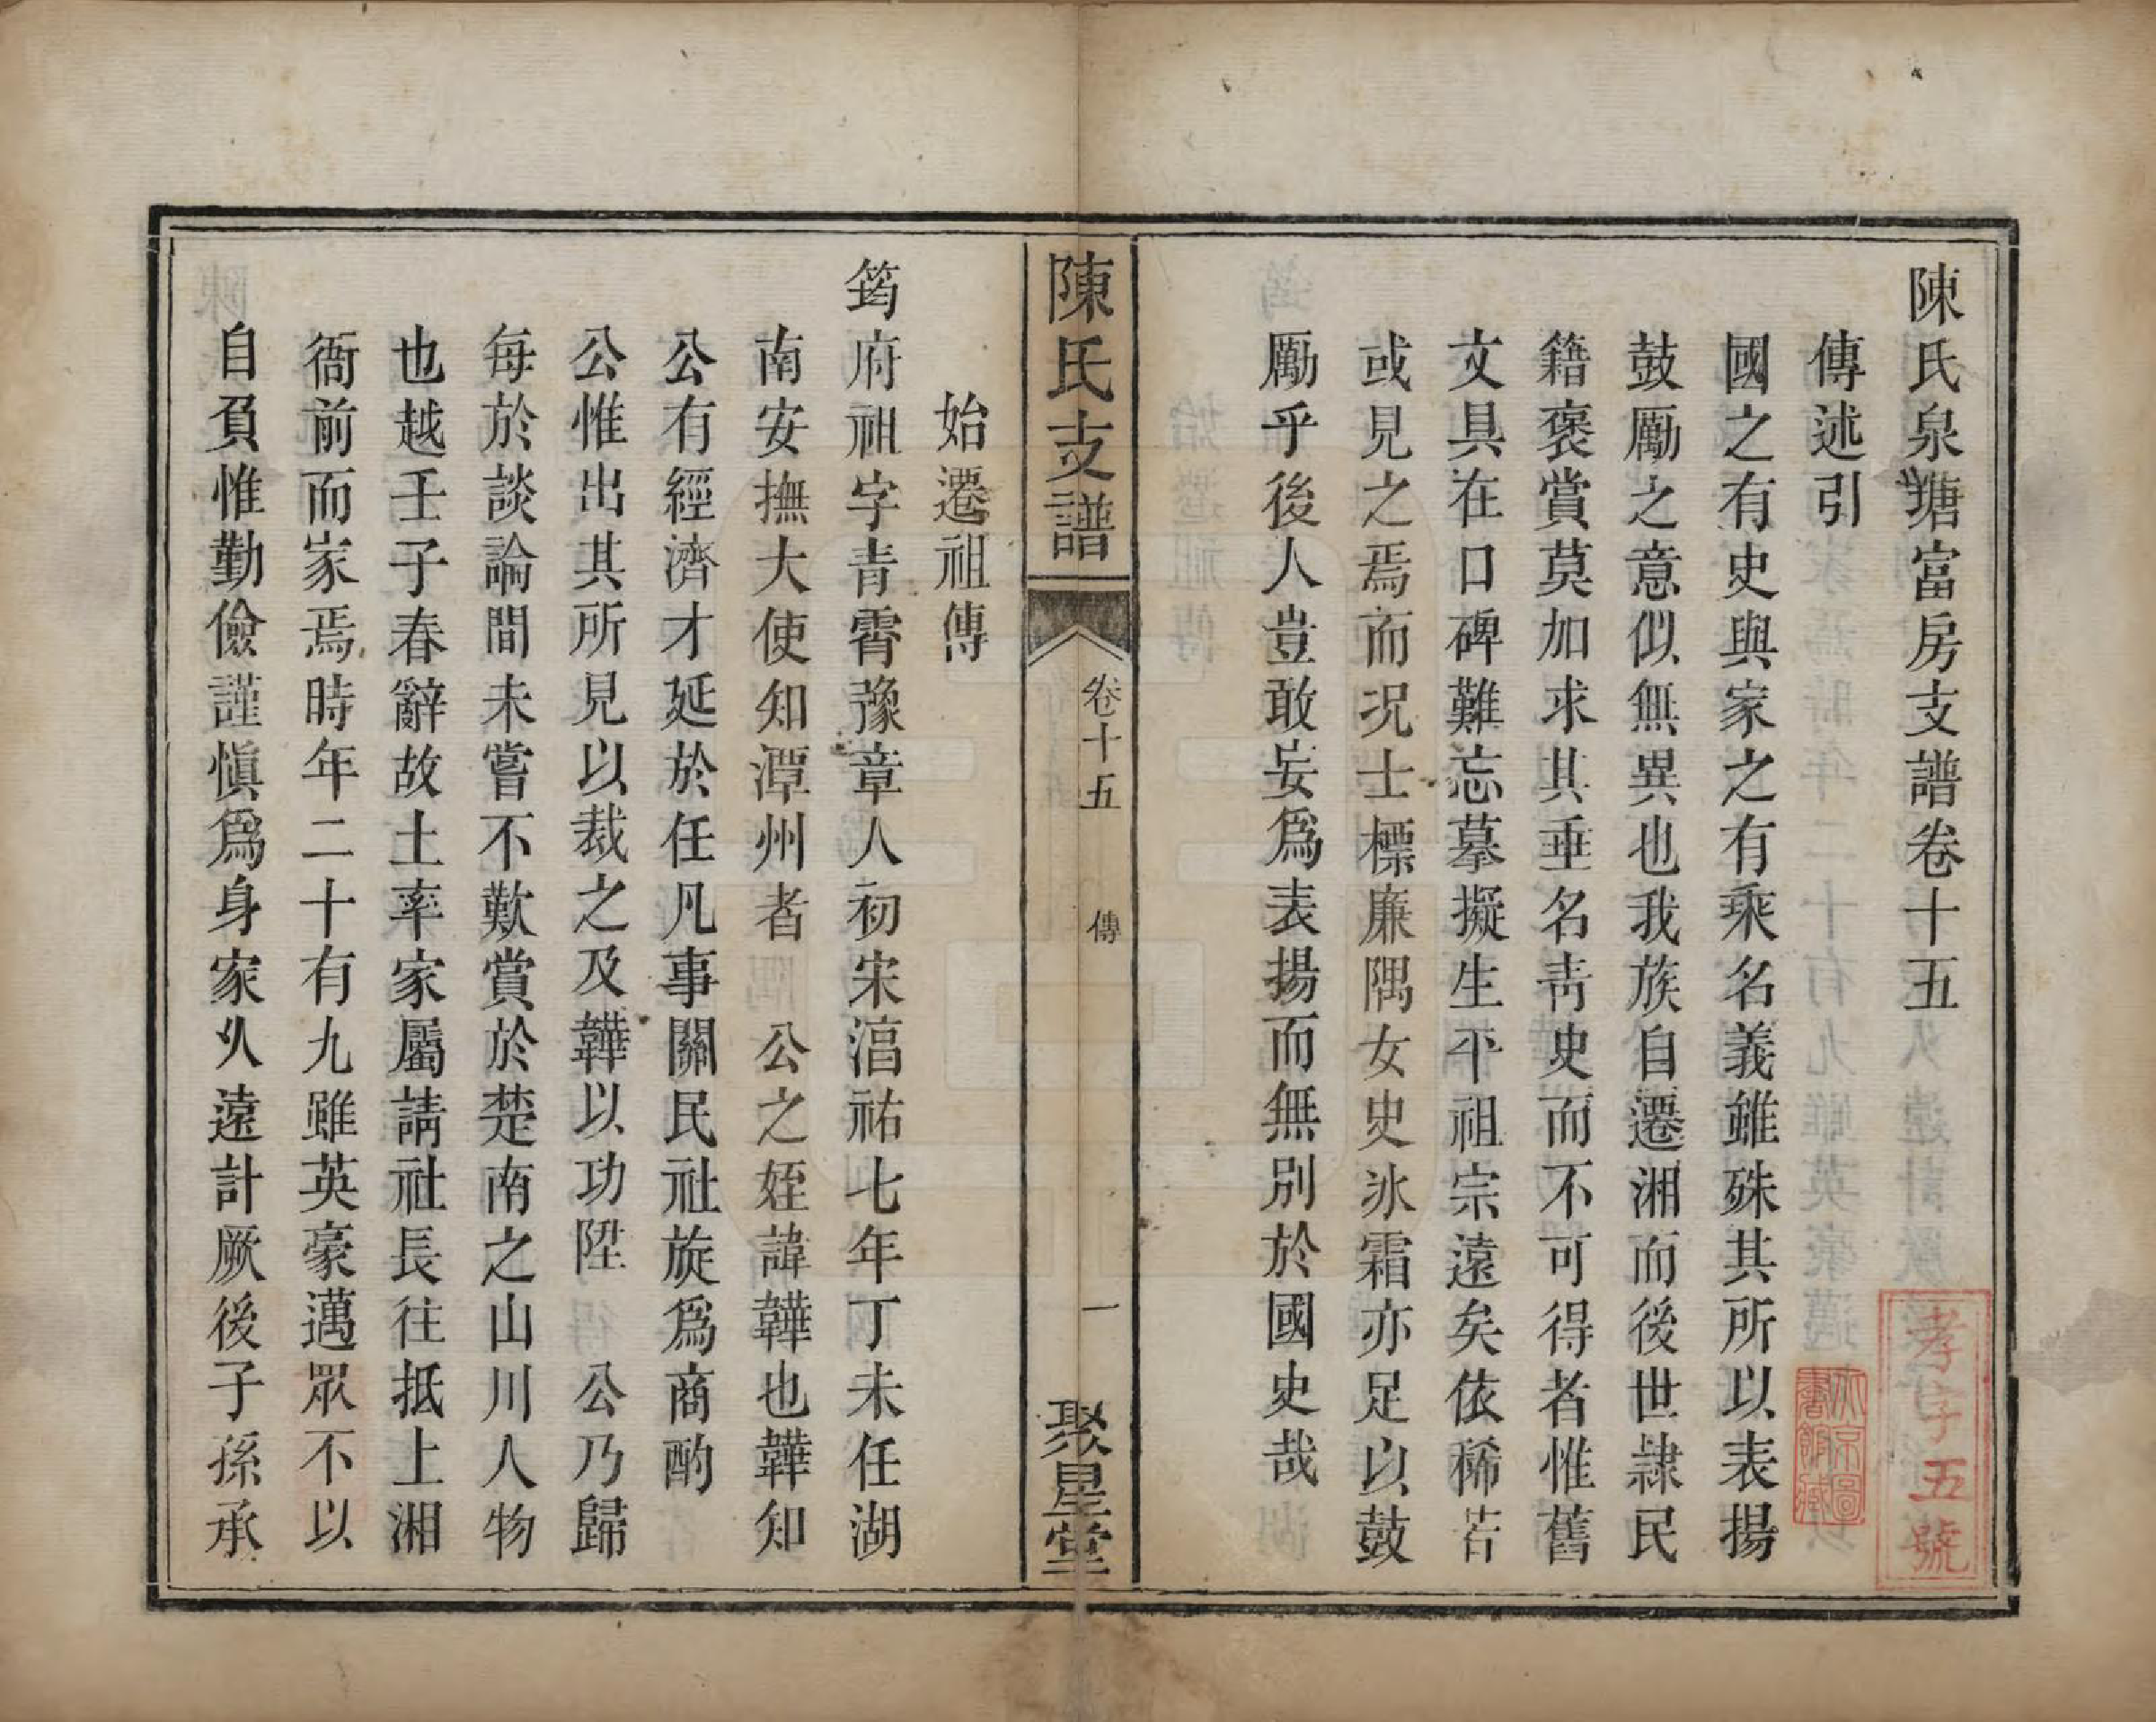 陳氏泉塘富房支譜卷十五
傳述引
國之有史與家之有乘名義雖殊其所以表揚
鼓勵之意似無異也我族自遷湘而後世隸民
籍褒賞莫加求其垂名青史而不可得者惟舊
文具在口碑難忘摹擬生平祖宗遠矣依稀若
或見之焉而况士標廉隅女史冰霜亦足以鼓
勵乎後人豈敢妄爲表揚而無別於國史哉
陳氏支譜
卷十五
傳
一
聚星堂
始遷祖傳
筠府祖字青霄豫章人初宋湻祐七年丁未任湖
南安撫大使知潭州者 公之姪諱韡也韡知
公有經濟才延於任凡事關民社旋爲商酌
公惟出其所見以裁之及韡以功陞 公乃歸
每於談論間未嘗不歎賞於楚南之山川人物
也越壬子春辭故土率家屬請社長往抵上湘
衙前而家焉時年二十有九雖英豪邁眾不以
自負惟勤儉謹慎爲身家久遠計厥後子孫承
孝字五號
北京圖
書館藏